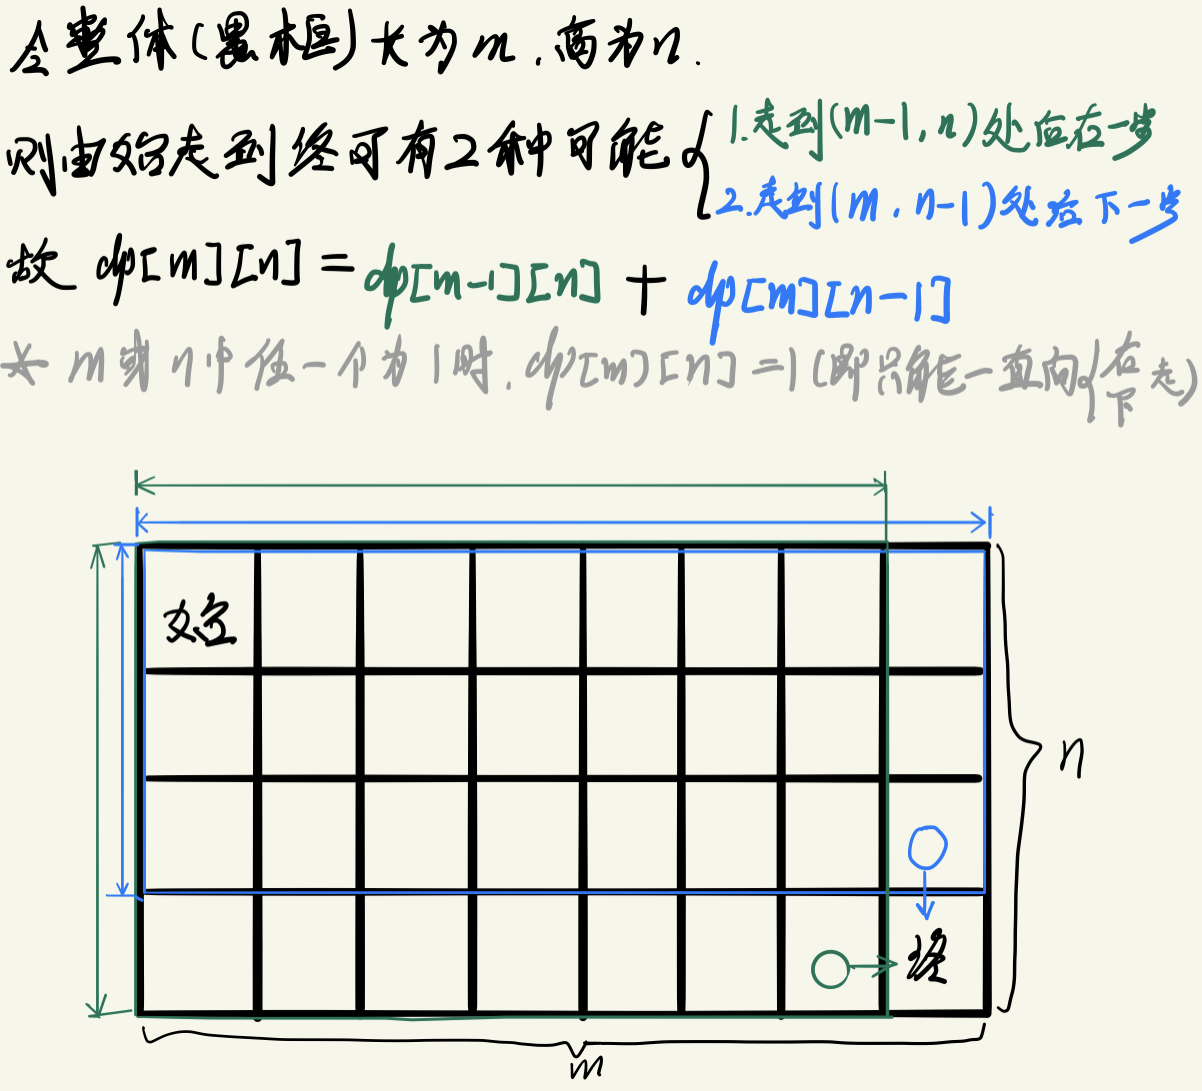 令整体(黑框)长为m.高为n.
则由始走到终可有2种可能{1.走到(m-1,n)处后右一步
2.走到(m,n-1)处后下一步
故 dp[m][n]=dp[m-1][n]+dp[m][n-1]
* m或n中任一个为1时.dp[m][n]=1(即只能一直向{右
下走)
始
n
终
m